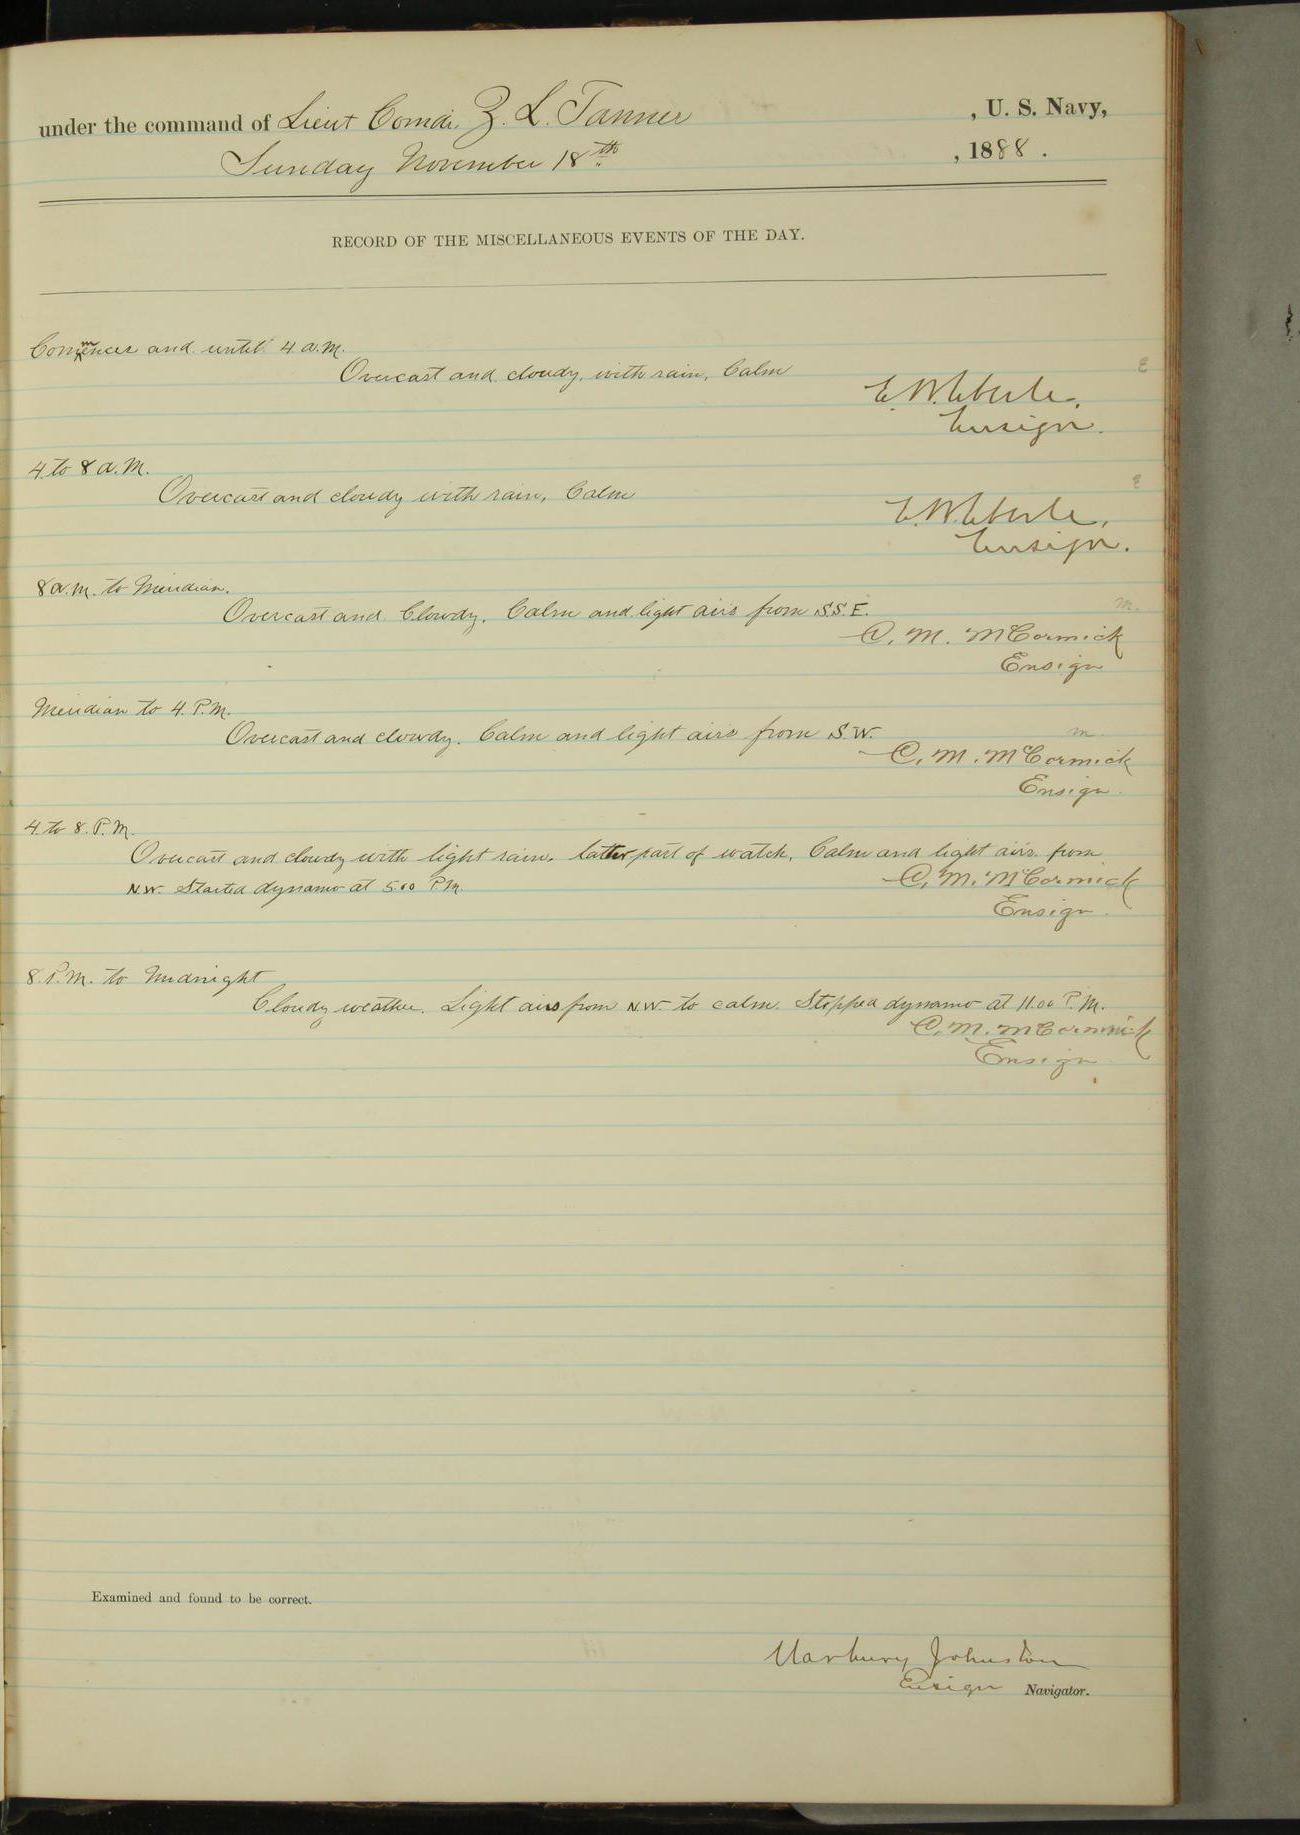 under the command of Lieut Comdr. Z. L. Tanner , U. S. Navy,
Sunday November 18th , 1888 .
RECORD OF THE MISCELLANEOUS EVENTS OF THE DAY.
Commences and until 4 a.m.
Overcast and cloudy, with rain, Calm
E
E. W. Eberle,
Ensign.
4 to 8 a.m.
Overcast and cloudy with rain, Calm
E
E. W. Eberle,
Ensign.
8 a.m. to Meridian.
Overcast and Cloudy. Calm and light airs from S.S.E.
m.
C. M. McCormick
Ensign
Meridian to 4 P.M.
Overcast and cloudy. Calm and light airs from S.W.
m
C. M. McCormick
Ensign.
4 to 8. P.M.
Overcast and cloudy with light rain, latter part of watch, Calm and light airs from
N.W. Started dynamo at 5.00 P.M.
C. M. McCormick
Ensign.
8. P.M. to Midnight
Cloudy weather. Light airs from N.W. to calm. Stopped dynamo at 11.00 P.M.
C. M. McCormick
Ensign.
Examined and found to be correct.
Marbury Johnston
Ensign Navigator.